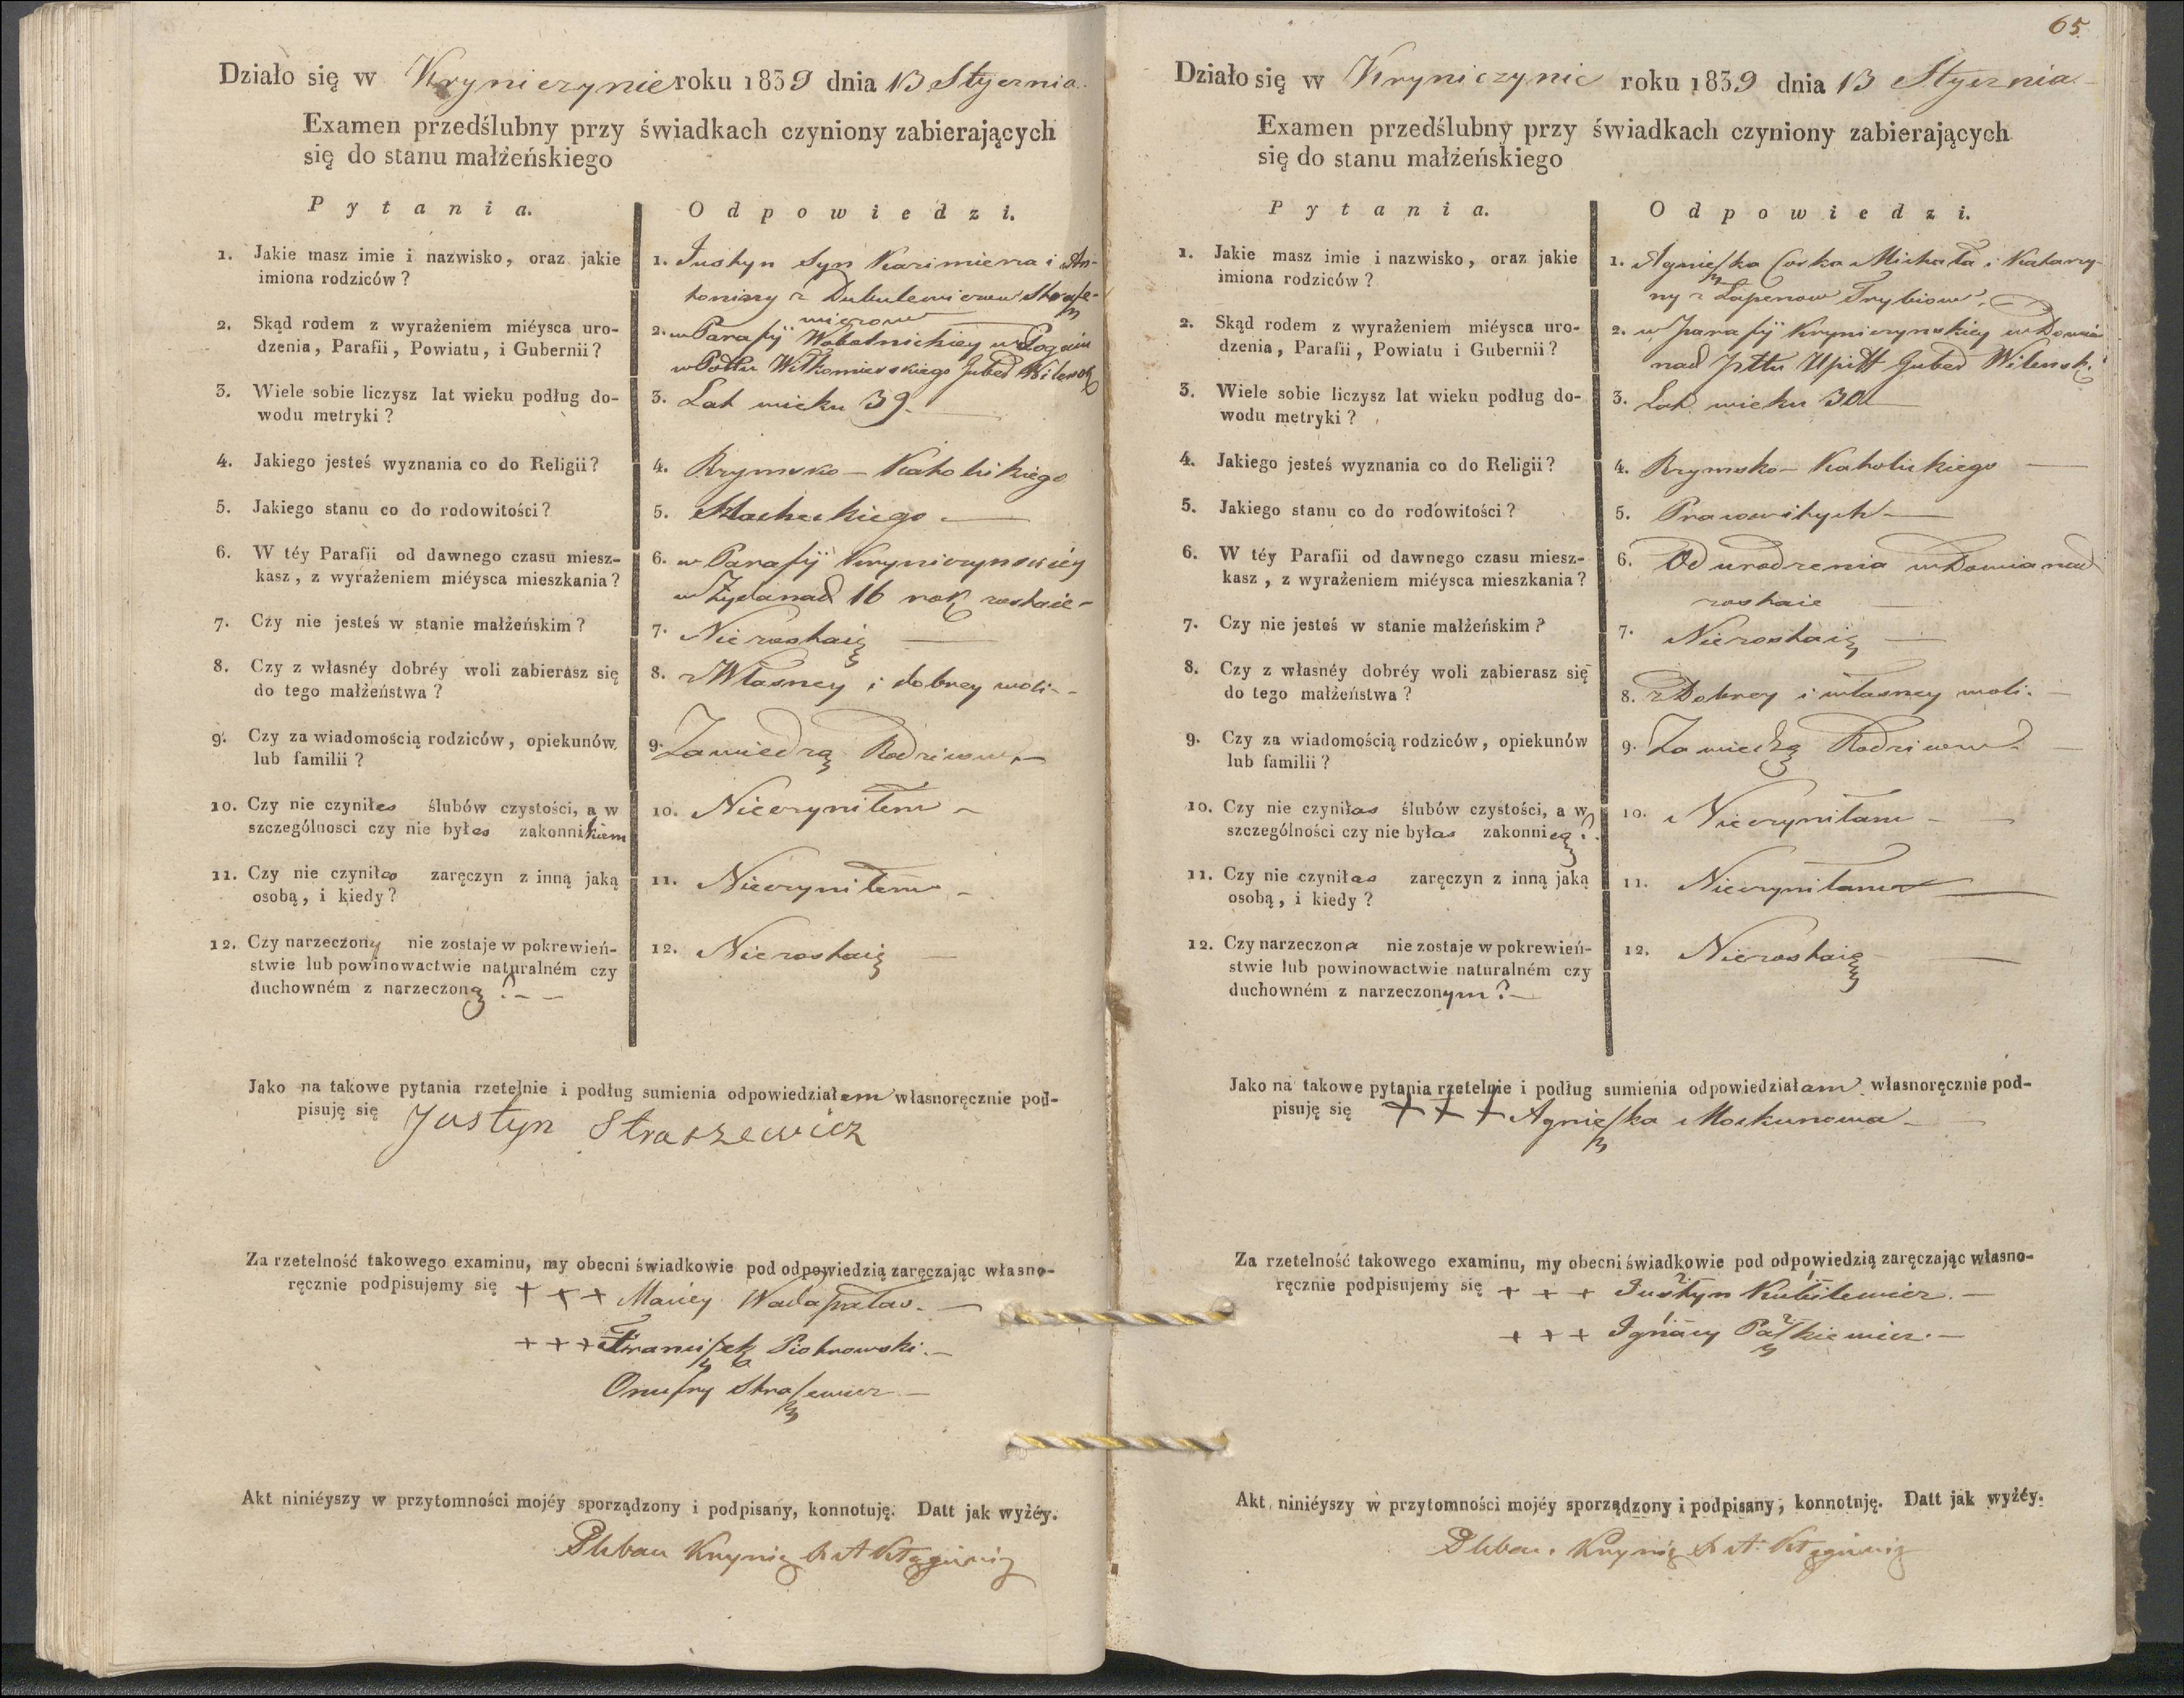 Działo się w Kryniczynie roku 1839 dnia 13 Stycznia
Examen przedślubny przy świadkach czyniony zabierających
się do stanu małżeńskiego
Pytania.
Odpowiedzi.
1. Jakie masz imie i nazwisko, oraz jakie
imiona rodziców?
1. Justyn Syn Kazimierza i An-
toniny z Strasze-
wiczow
2. Skąd rodem z wyrażeniem miéysca uro-
dzenia, Parafii, Powiatu, i Gubernii?
2. w Parafij Wobolnickiey w
w Pottu Wiłkomierskiego Guber Wilensk
3. Wiele sobie liczysz lat wieku podług do-
wodu metryki?
3. Lat wieku 39.
4. Jakiego jesteś wyznania co do Religii?
4. Rzymsko-Katolickiego
5. Jakiego stanu co do rodowitości?
5. Szlacheckiego
6. W téy Parafii od dawnego czasu miesz-
kasz, z wyrażeniem miéysca mieszkania?
6. w Parafij Kryniczynskiéy
16 rok zostaie-
7. Czy nie jesteś w stanie małżeńskim?
7. Niezostaię
8. Czy z własnéy dobréy woli zabierasz się
do tego małżeństwa?
8. z Własney i dobrey woli-
9. Czy za wiadomością rodziców, opiekunów
lub familii?
9. Zawiedzą Rodzicow
10. Czy nie czyniłes ślubów czystości, a w
szczególnosci czy nie byłes zakonnikiem
10. Nieczyniłem
11. Czy nie czyniłes zaręczyn z inną jaką
osobą, i kiedy?
11. Nieczyniłem
12. Czy narzeczony nie zostaje w pokrewień-
stwie lub powinowactwie naturalném czy
duchowném z narzeczoną?
12. Niezostaię
Jako na takowe pytania rzetelnie i podług sumienia odpowiedziałem własnoręcznie pod-
pisuję się Justyn Straszewicz
Za rzetelność takowego examinu, my obecni świadkowie pod odpowiedzią zaręczając własno-
ręcznie podpisujemy się + + + Maciey
+ + + Franciszek Piotrowski.
Onufry Straszewicz
Akt niniéyszy w przytomności mojéy sporządzony i podpisany, konnotuję. Datt jak wyżéy.
Pleban
65.
Działo się w Kryniczynie roku 1839 dnia 13 Stycznia
Examen przedślubny przy świadkach czyniony zabierających
się do stanu małżeńskiego
Pytania.
Odpowiedzi.
1. Jakie masz imie i nazwisko, oraz jakie
imiona rodziców?
1. Agnieszka Corka Michała i Katarzy-
ny z Łapenow Trybiow
2. Skąd rodem z wyrażeniem miéysca uro-
dzenia, Parafii, Powiatu i Gubernii?
2. w Parafij Kryniczynskiey w Dowia
nad Pttu Upitt Guber Wilensk.
3. Wiele sobie liczysz lat wieku podług do-
wodu metryki?
3. Lat wieku 30
4. Jakiego jesteś wyznania co do Religii?
4. Rzymsko-Katolickiego
5. Jakiego stanu co do rodowitości?
5. Pracowitych
6. W téy Parafii od dawnego czasu miesz-
kasz, z wyrażeniem miéysca mieszkania?
6. Od urodzenia w Dowianad
zostaie
7. Czy nie jesteś w stanie małżeńskim?
7. Niezostaię
8. Czy z własnéy dobréy woli zabierasz się
do tego małżeństwa?
8. z Dobrey i własney woli.
9. Czy za wiadomością rodziców, opiekunów
lub familii?
9. Zawiedzą Rodzicow
10. Czy nie czyniłas ślubów czystości, a w
szczególności czy nie byłas zakonnicą?
10. Nieczyniłam
11. Czy nie czyniłas zaręczyn z inną jaką
osobą, i kiedy?
11. Nieczyniłam
12. Czy narzeczona nie zostaje w pokrewień-
stwie lub powinowactwie naturalném czy
duchowném z narzeczonym?
12. Niezostaię
Jako na takowe pytania rzetelnie i podług sumienia odpowiedziałam własnoręcznie pod-
pisuję się + + + Agnieszka Mockunowa
Za rzetelność takowego examinu, my obecni świadkowie pod odpowiedzią zaręczając własno-
ręcznie podpisujemy się + + + Justyn Kubilewicz.
+ + + Ignacy Paszkiewicz.
Akt niniéyszy w przytomności mojéy sporządzony i podpisany, konnotuję. Datt jak wyżéy.
Pleban